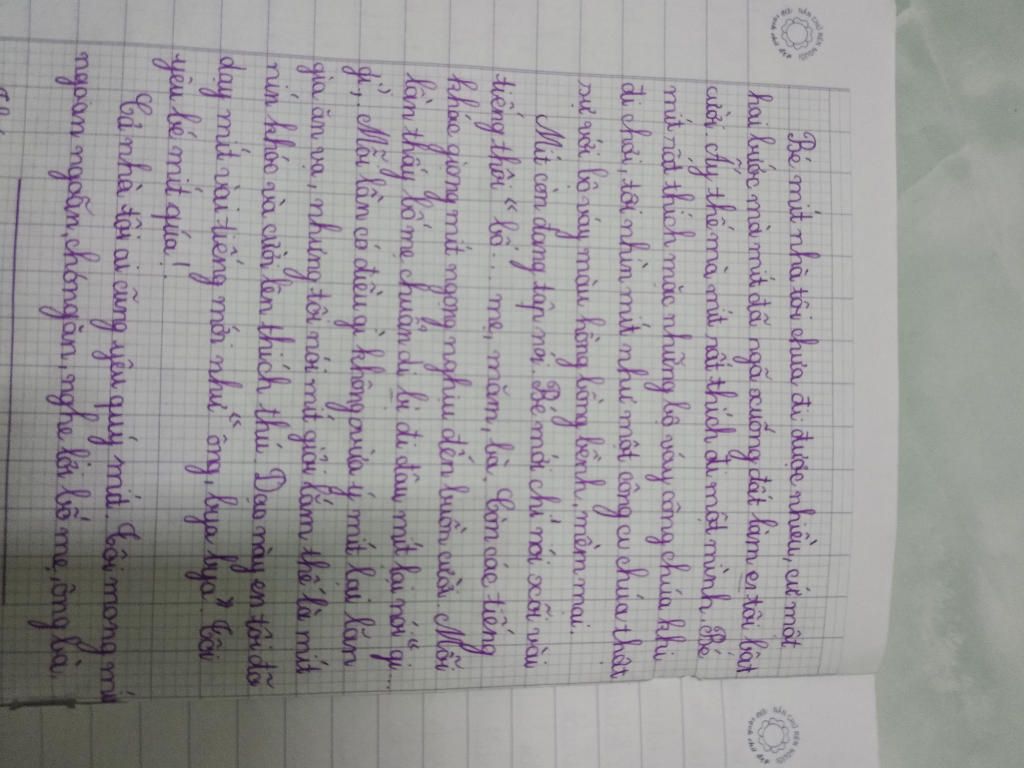 NẮN CHỮ RÈN NGƯỜI
Bé mít nhà tôi chưa đi được nhiều, cứ một
hai bước mà mít đã ngã xuống đất làm em tôi bật
cười. Ấy thế mà, mít rất thích đi một mình. Bé
mít rất thích mặc những bộ váy công chúa khi
đi chơi, tôi nhìn mít như một công cu chúa thật
sự với bộ váy màu hồng bồng bềnh, mềm mại.
Mít còn đang tập nói. Bé mới chỉ nói xõi vài
tiếng thôi "bố... mẹ, măm, bà. Còn các tiếng
khác giọng mít ngọng nghịu đến buồn cười. Mỗi
lần thấy bố mẹ chuẩn đi bị đi đâu mít lại nói "gi...
gỉ". Mỗi lần có điều gì không vừa ý mít lại lăn
gia ăn vạ, nhưng tôi nói mít giỏi lắm thế là mít
nín khóc và cười lên thích thú. Dạo này em tôi đã
dạy mít vài tiếng mới như "ông, bya bya". Tôi
yêu bé mít qúa!
Cả nhà tôi ai cũng yêu quý mít. Tôi mong mí
ngoan ngoãn, chóng ăn, nghe lời bố mẹ, ông bà,
NẮN CHỮ RÈN NGƯỜI